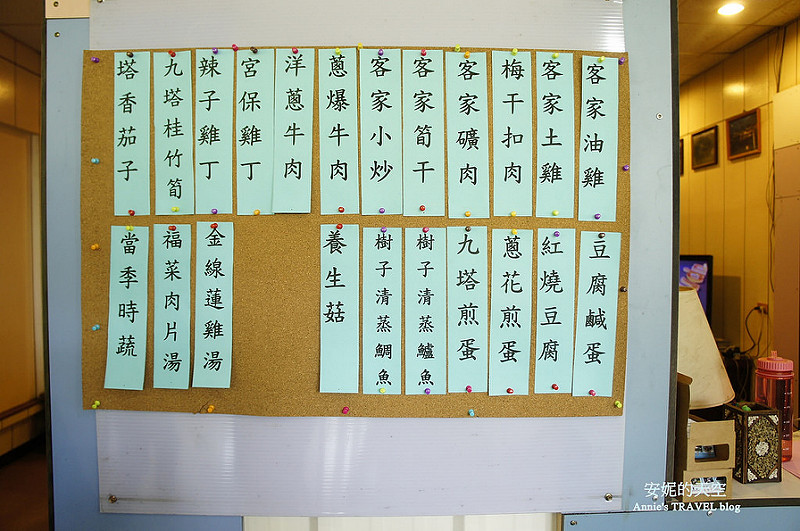 客家油雞
客家土雞
梅干扣肉
客家礦肉
客家筍干
客家小炒
蔥爆牛肉
洋蔥牛肉
宮保雞丁
辣子雞丁
九塔桂竹筍
塔香茄子
豆腐鹹蛋
紅燒豆腐
蔥花煎蛋
九塔煎蛋
樹子清蒸鱸魚
樹子清蒸鯛魚
養生菇
金線蓮雞湯
福菜肉片湯
當季時蔬
安妮的天空
Annie's TRAVEL blog